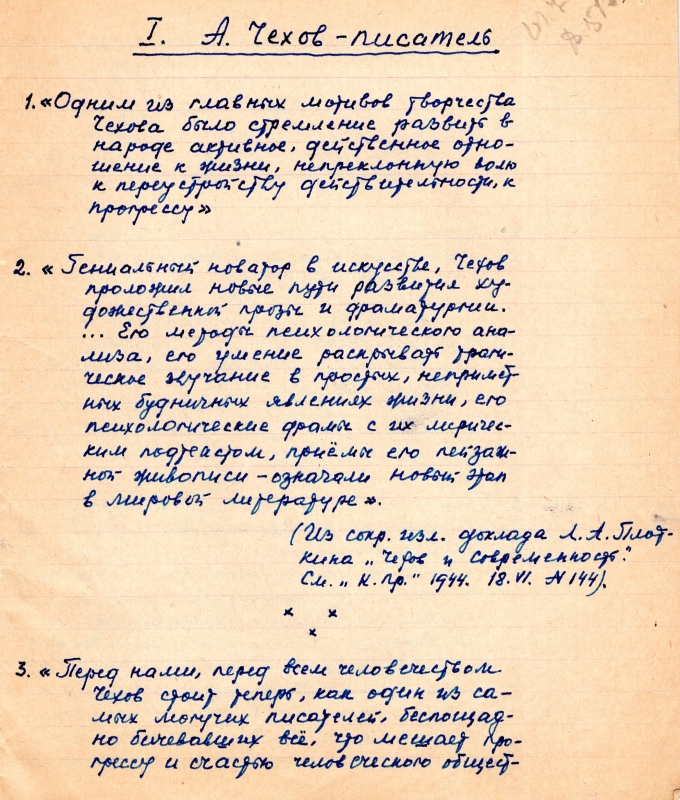 I. А. Чехов – писатель
1. «Одним из главных мотивов творчества
Чехова было стремление развить в
народе активное, действенное отно-
шение к жизни, непреклонную волю
к переустройству действительности, к
прогрессу»
2. «Гениальный новатор в искусстве, Чехов
проложил новые пути развития ху-
дожественной прозы и драматургии.
... Его методы психологического ана-
лиза, его умение раскрывать траги-
ческое звучание в простых, неприметн-
ных будничных явлениях жизни, его
психологические драмы с их лиричес-
ким подтекстом, приёмы его пейзаж-
ной живописи – означали новый этап
в мировой литературе».
(Из сокр. изл. доклада Л. А. Плот-
кина „Чехов и современность".
См. „К. пр." 1944. 18.VI. N 144).
х х
х
3. «Перед нами, перед всем человечеством
Чехов стоит теперь, как один из са-
мых могучих писателей, беспощад-
но бичевавших всё, что мешает про-
грессу и счастью человеческого общест-